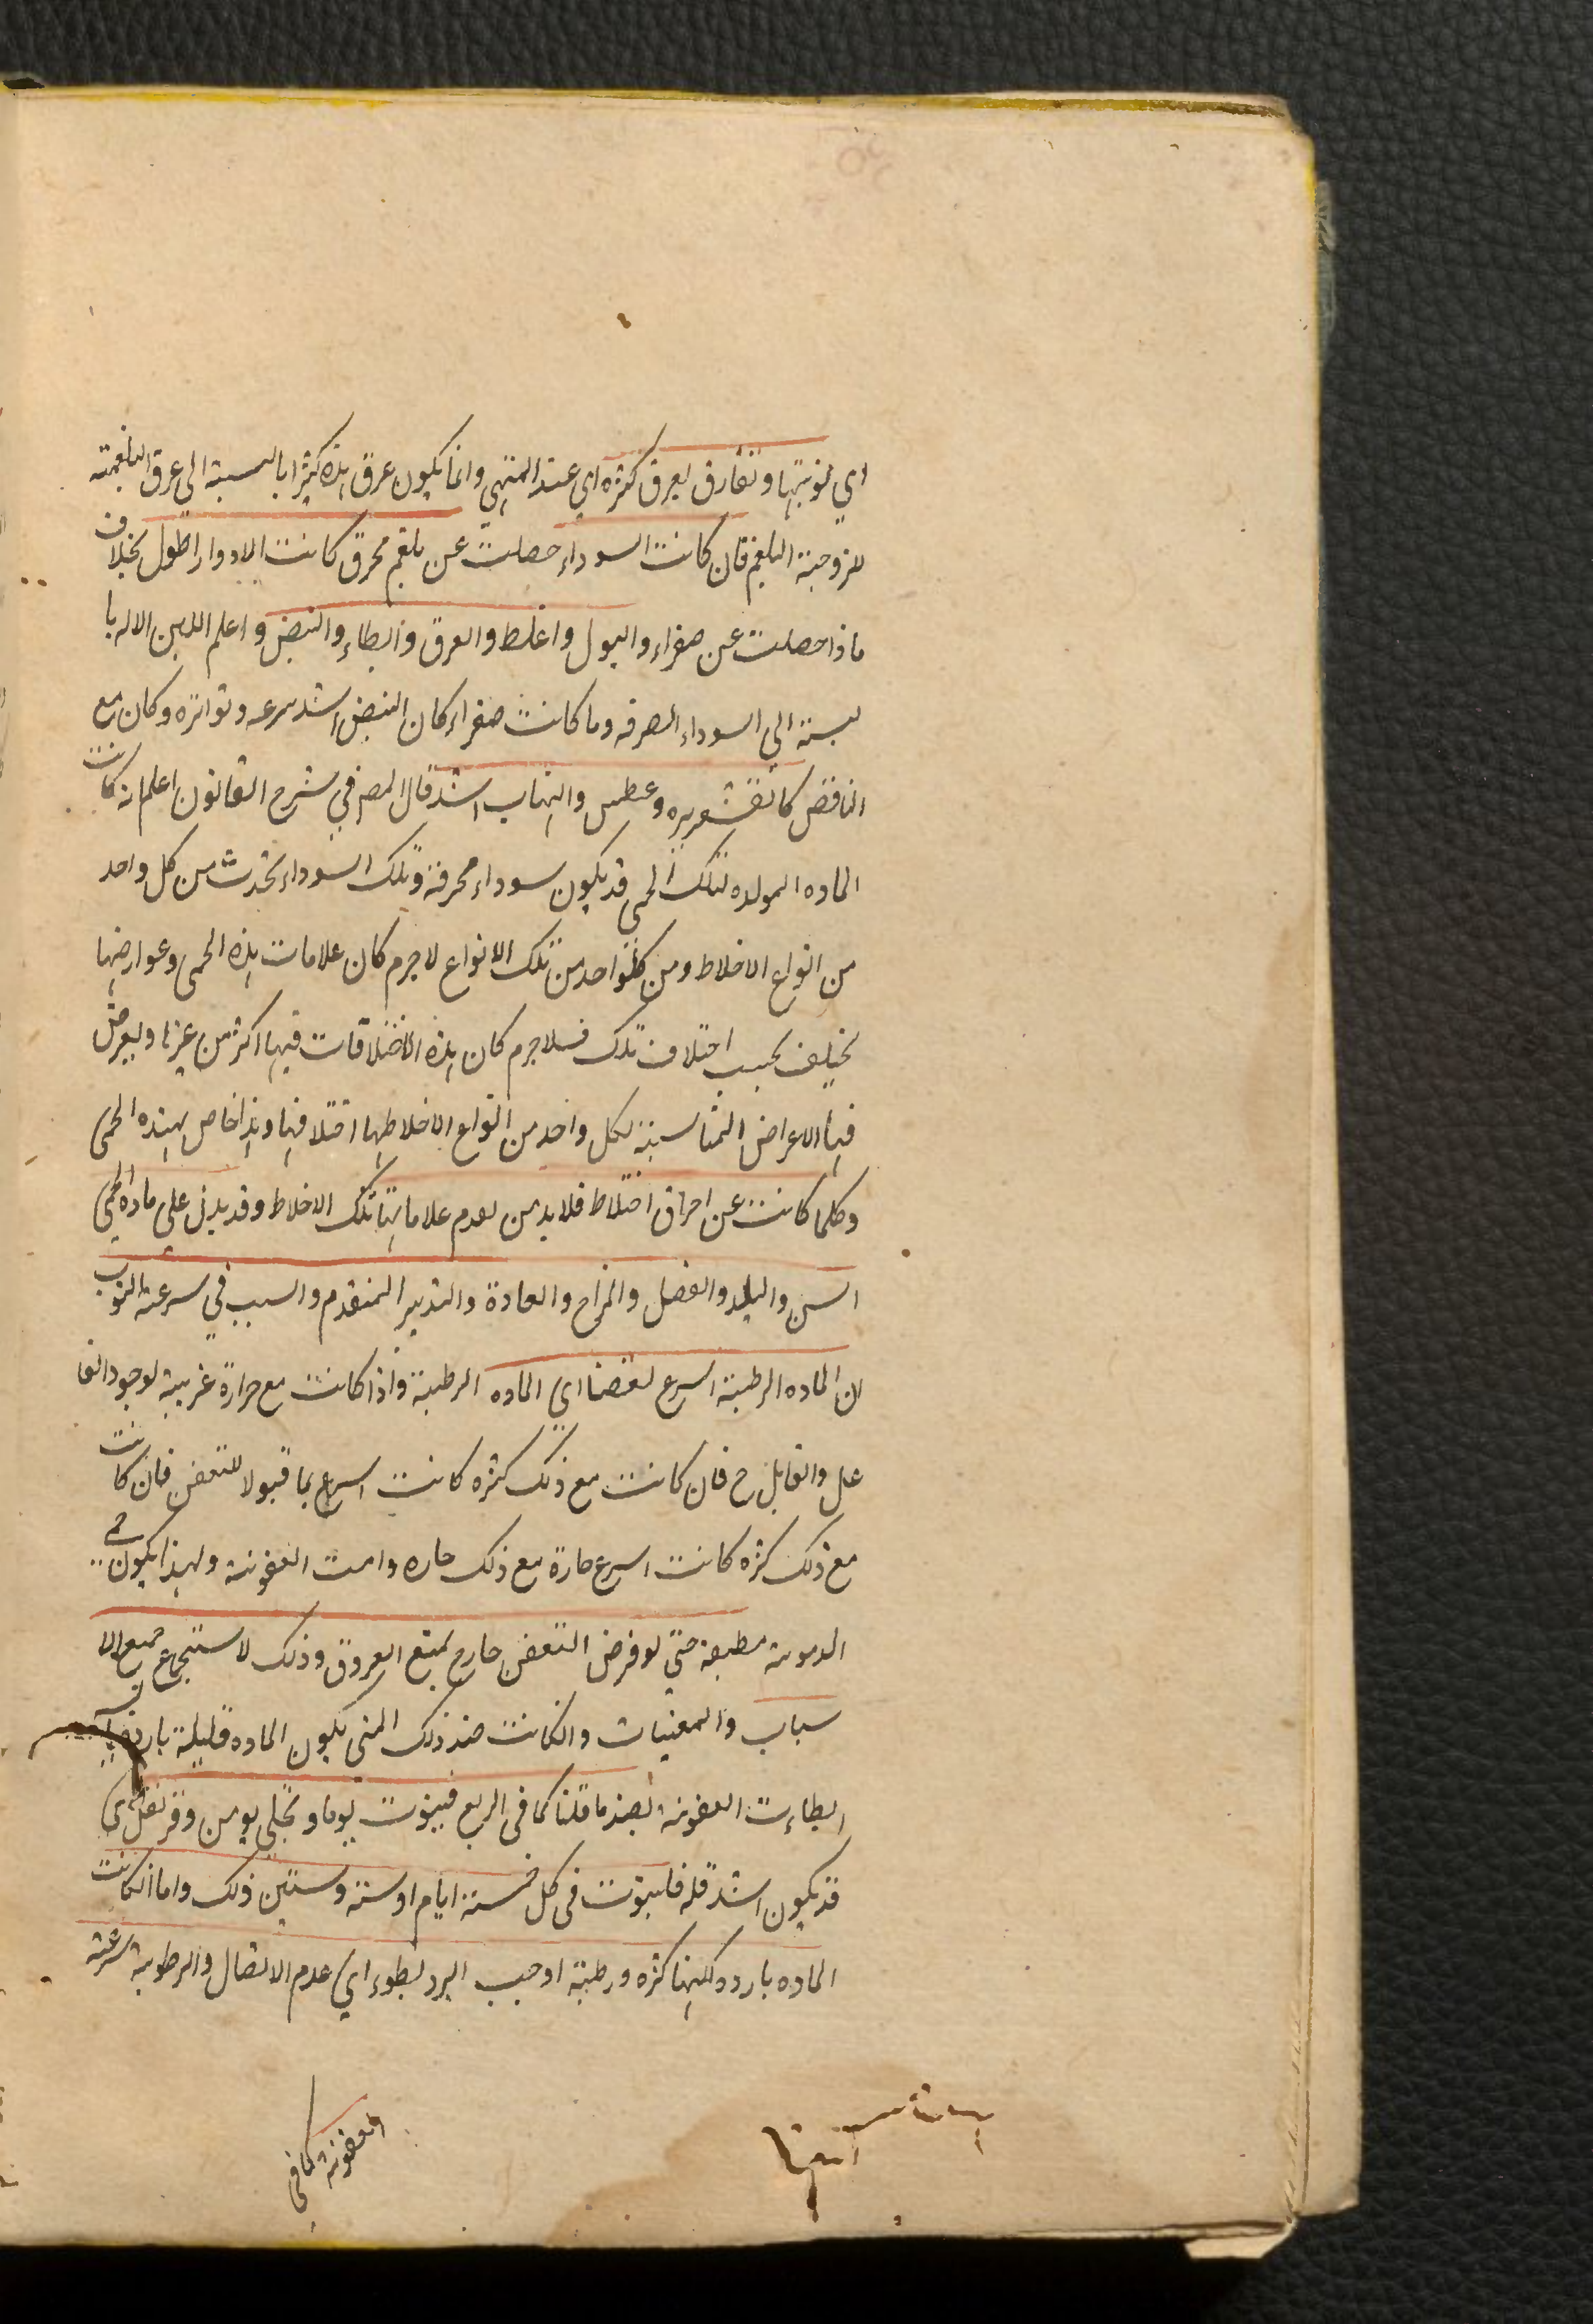 اي نوبتها وتفارق بعرق كثره اي عند المنتهي وانما يكون عرق هذه كثيرا بالنسبة الي عرق البلغمية
للزوجية البلغم فان كانت السوداء حصلت عن بلغم محرق كانت الادوار اطول بخلاف
ماذا حصلت عن صفراء والبول واغلظ والعرق وابطاء والنبض واعلم اللين الاله با
لسبة الي السوداء الصرفه وما كانت صفراء كان النبض اشد سرعه وتواتره وكان مع
النافض كالقشعريره وعطس والتهاب اشد قال المص في شرح القانون اعلم انه كانت
الماده المولده لتلك الحمى قد يكون سوداء محرقة وتلك السوداء تحدث من كل واحد
من انواع الاخلاط ومن كلواحد من تلك الانواع لاجرم كان علامات هذه الحمى وعوارضها
يختلف بحسب اختلاف تلك فلاجرم كان هذه الاختلافات فيها اكثر من غيرها وبعرض
فيها الاعراض المناسبة لكل واحد من انواع الاخلاطها اختلافها وهذا خاص بهذه الحمى
وكلما كانت عن احراق اختلاط فلابد من لعدم علاماتها تلك الاخلاط وقد يدل على ماده الحمى
السن والبلد والفصل والمزاج والعادة والتدبير المتقدم والسبب في سرعة النوب
ان الماده الرطبة اسرع تعفنا اي الماده الرطبة واذا كانت مع حرارة غريبة لوجود الفا
عل والقابل ح فان كانت مع ذلك كثره كانت اسرع بها قبولا للتعفن فان كانت
مع ذلك كثره كانت اسرع حارة مع ذلك حاره دامت العفونة ولهذا يكون حمى
الدموية مطبقة حتي لو فرض التعفن خارج لمتع العروق وذلك لاستجماع جميع الا
سباب والمعنيات والكانت ضد ذلك المنى يكون الماده قليلة بارده يابسه
ابطاءت العفونه لضد ما قلنا كما فى الربع فينوب يوما ويخلي يومين وقر تفل اى
قد يكون اشد قله فلينوب فى كل خمسة ايام او ستة وستين ذلك واما الكانت
الماده بارده لكنها كثره ورطبة اوجب البرد بطوء اي عدم الاتصال والرطوبة سرعة
العفونة كافى